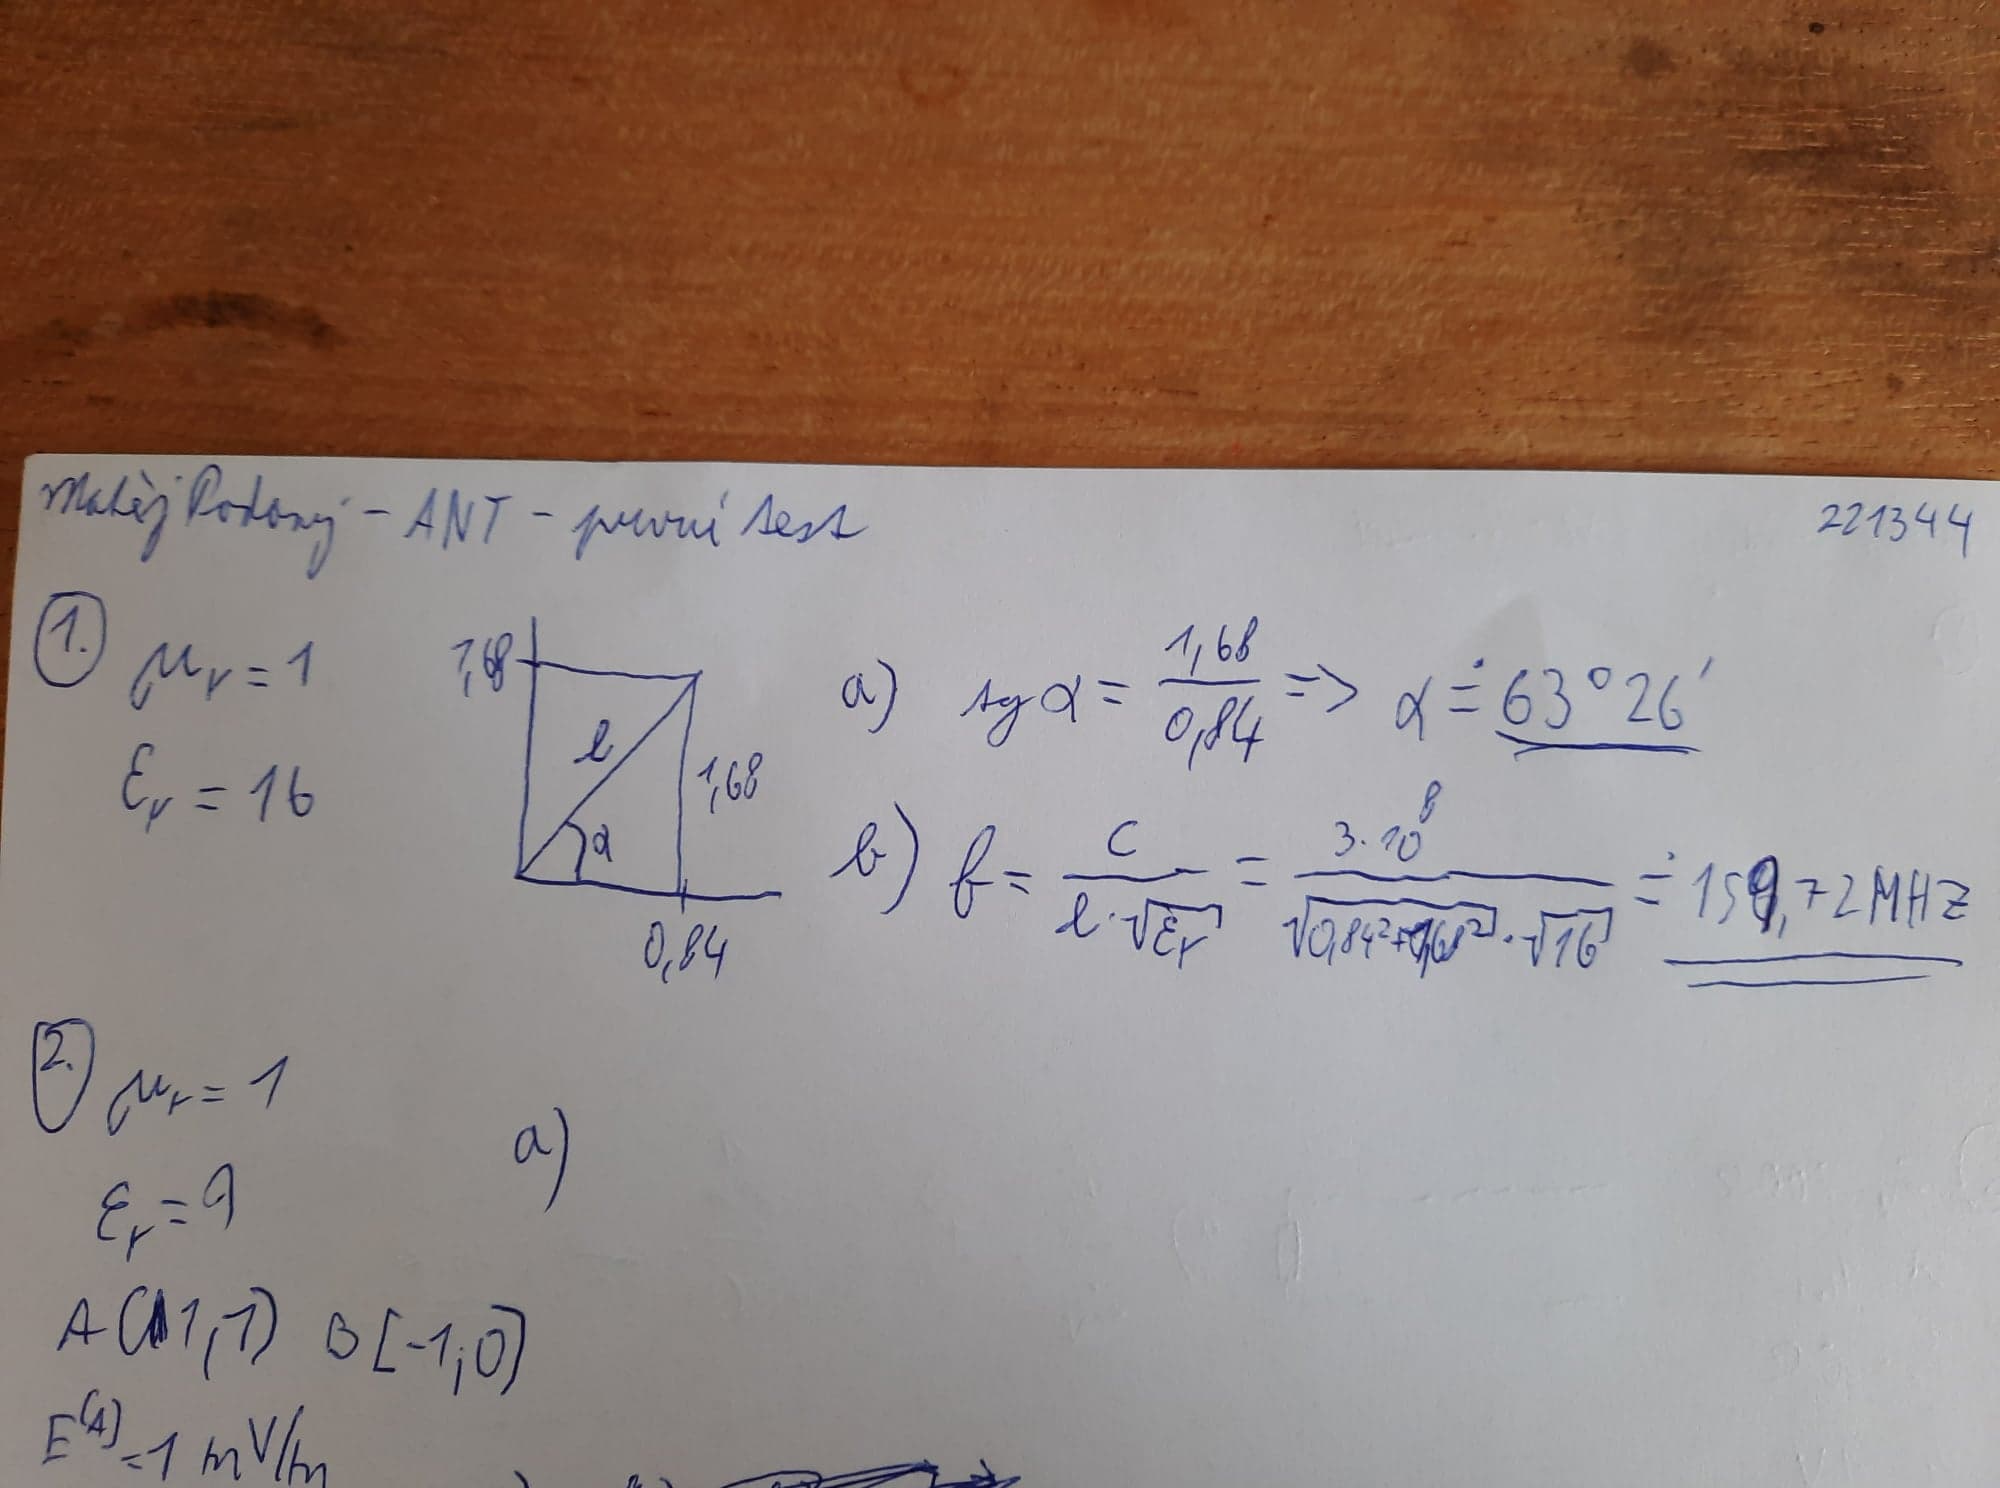 Matěj Podaný - ANT - první test 221344
1. μr = 1
εr = 16
1,68
l
α
1,68
0,84
a) tg α = 1,68 / 0,84 => α ≐ 63°26'
b) f = c / (l · √εr) = 3·10⁸ / (√(0,84² + 1,68²) · √16) ≐ 159,72 MHz
2. μr = 1
a)
εr = 9
A(1,1) B[-1;0]
E(A) = 1 mV/m